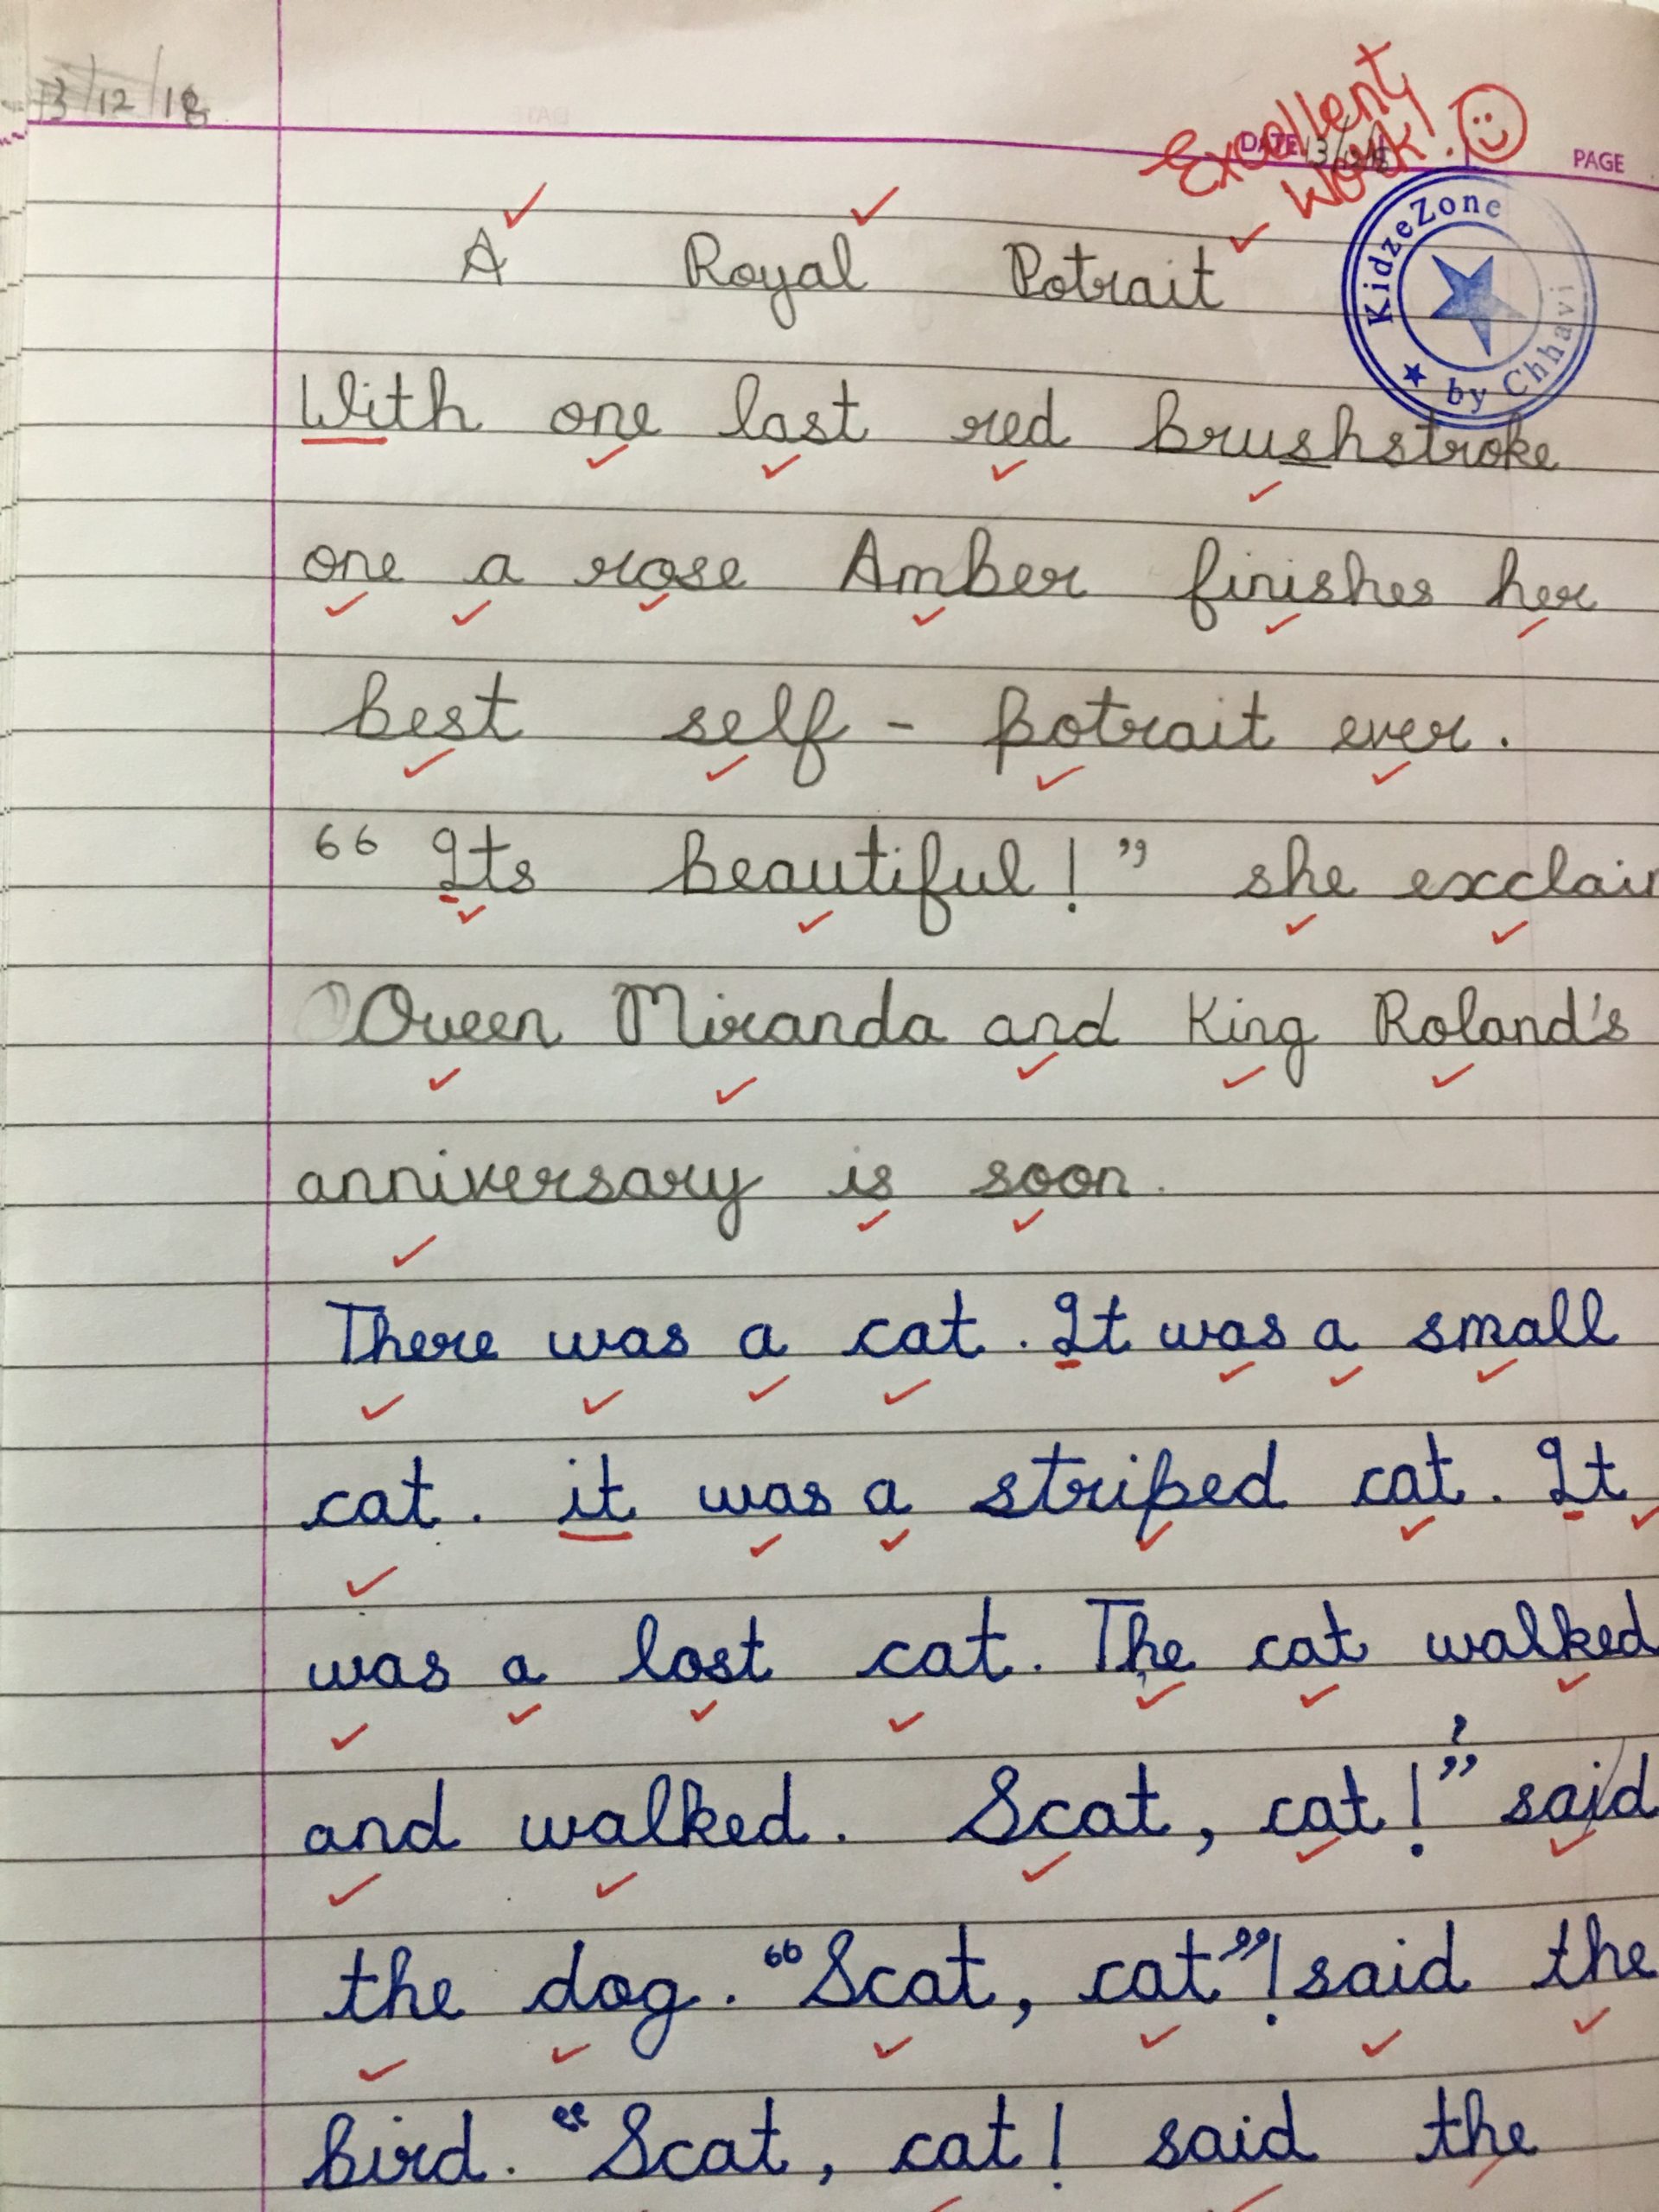 13/12/18
Excellent
Work!
DATE 13/12/18
PAGE
KidzeZone
by Chhavi
A Royal Potrait
With one last red brushstroke
one a rose Amber finishes her
best self - potrait ever.
“ Its beautiful! ” she exclaim
Queen Miranda and King Roland's
anniversary is soon.
There was a cat. It was a small
cat. it was a striped cat. It
was a lost cat. The cat walked
and walked. Scat, cat!” said
the dog. “Scat, cat”! said the
bird. “Scat, cat! said the